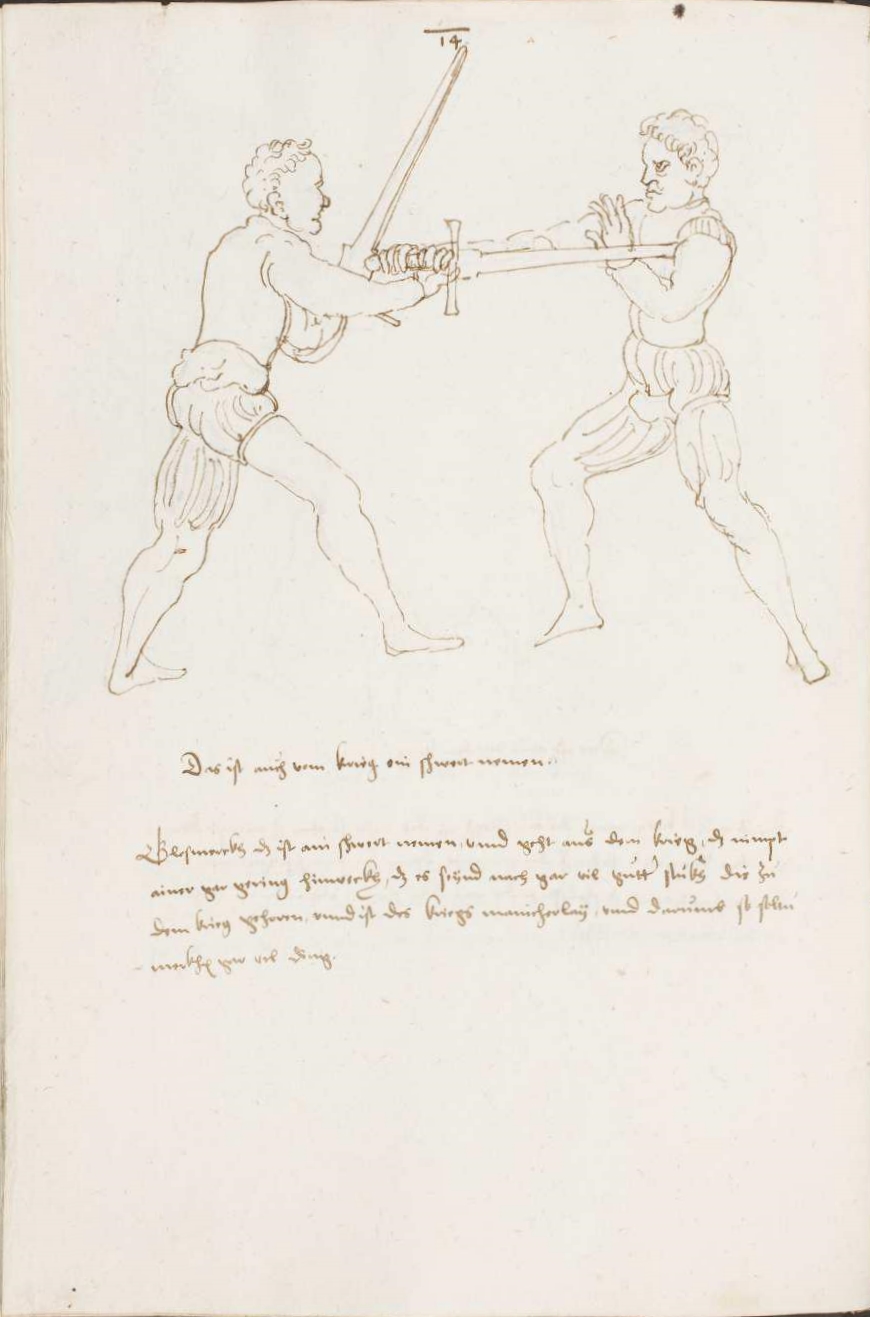 14
Das ist auch vom krieg ein schwert nemen.
merckh dz ist ain schwert nemen, vnnd geht aus dem krieg, dz nimpt
ainer gar gering hinweckh, dz es seynd noch gar vil gutter stuckh die zu
dem krieg gehoren, vnnd ist des kriegs manicherlay, vnnd darumb so soltu
merkhen gar vil ding.